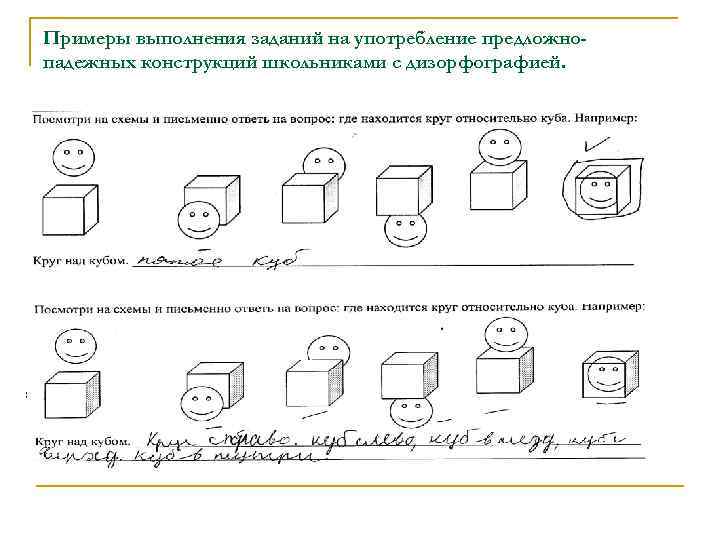 Примеры выполнения заданий на употребление предложно-
падежных конструкций школьниками с дизорфографией.
Посмотри на схемы и письменно ответь на вопрос: где находится круг относительно куба. Например:
Круг над кубом. куб
Посмотри на схемы и письменно ответь на вопрос: где находится круг относительно куба. Например:
Круг над кубом. Круг справо. куб слево, куб в
куб в